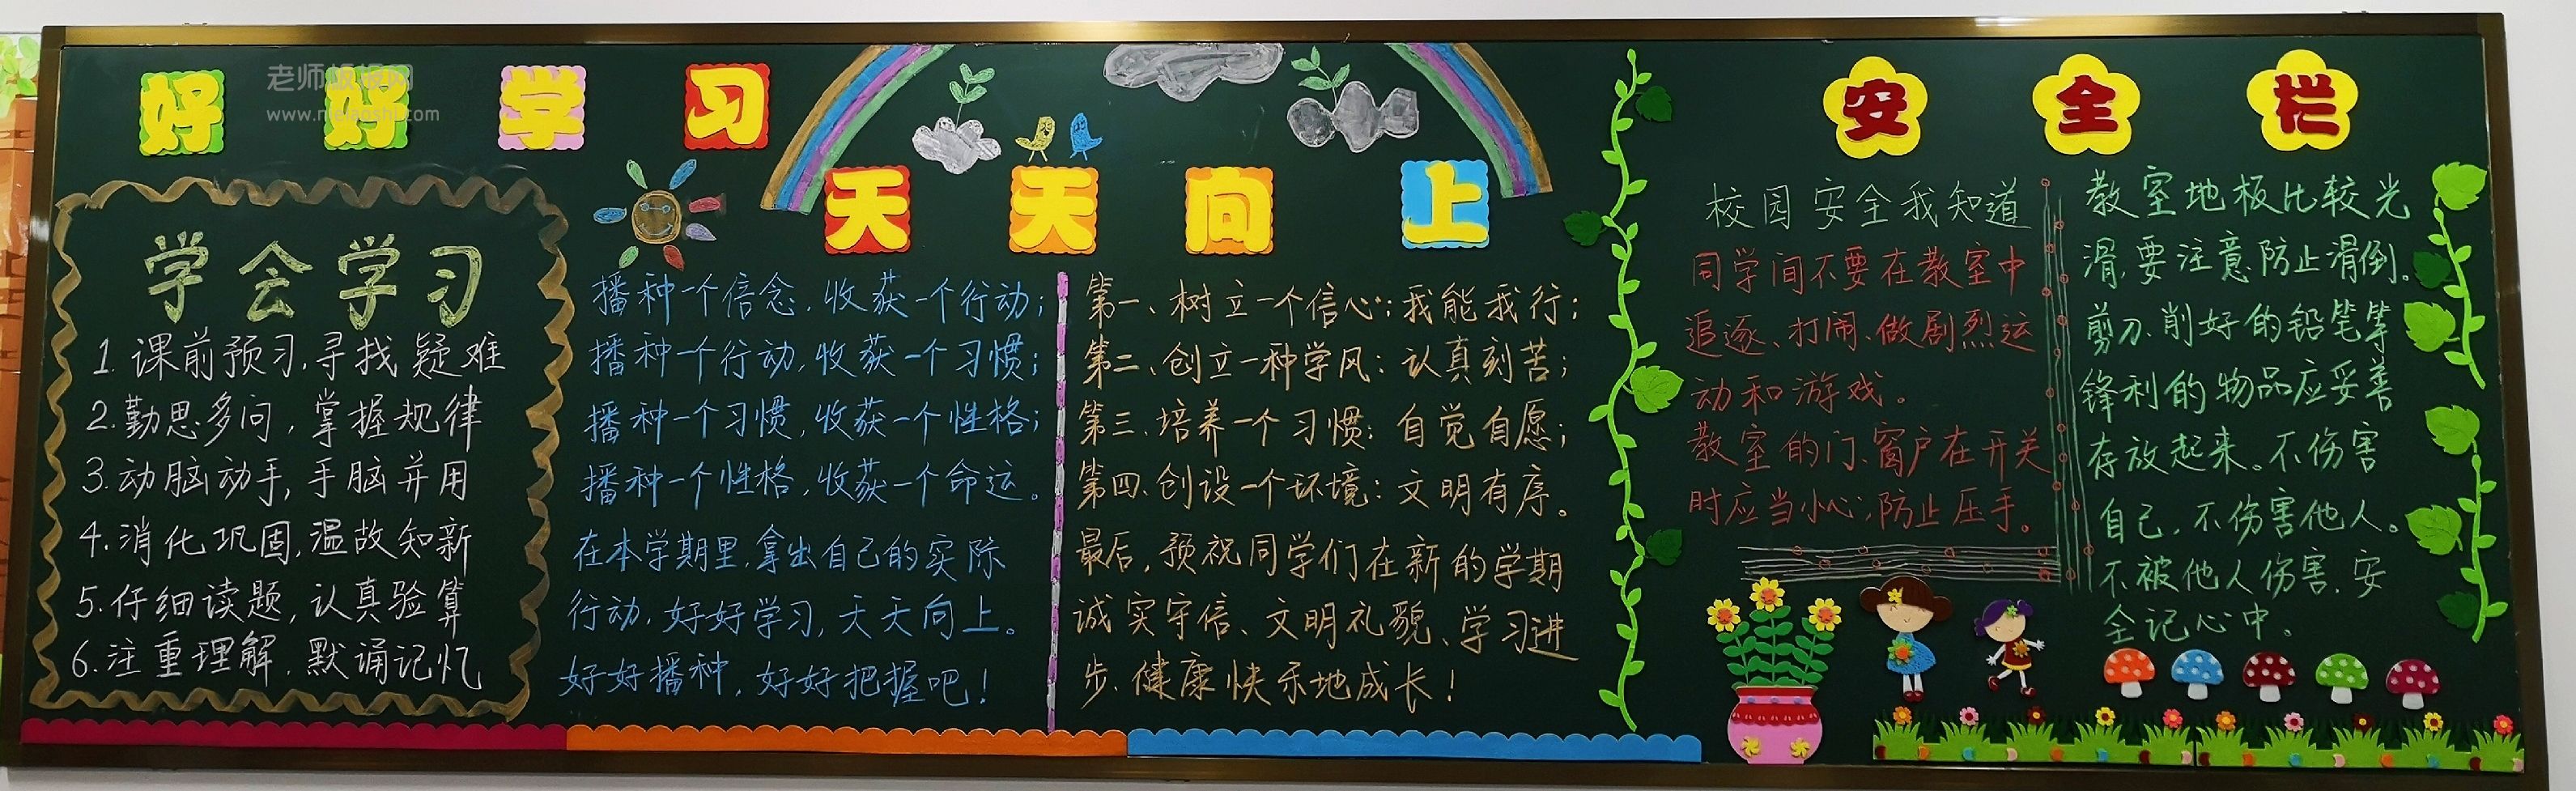 好好学习
天天向上
安全栏
老师板报网
学会学习
1.课前预习,寻找疑难
2.勤思多问,掌握规律
3.动脑动手,手脑并用
4.消化巩固,温故知新
5.仔细读题,认真验算
6.注重理解,默诵记忆
播种一个信念,收获一个行动;
播种一个行动,收获一个习惯;
播种一个习惯,收获一个性格;
播种一个性格,收获一个命运。
在本学期里,拿出自己的实际
行动,好好学习,天天向上。
好好播种,好好把握吧!
第一、树立一个信心:我能我行;
第二、创立一种学风:认真刻苦;
第三、培养一个习惯:自觉自愿;
第四、创设一个环境:文明有序。
最后,预祝同学们在新的学期
诚实守信、文明礼貌、学习进
步、健康快乐地成长!
校园安全我知道
同学间不要在教室中
追逐、打闹、做剧烈运
动和游戏。
教室的门、窗户在开关
时应当小心,防止压手。
教室地板比较光
滑,要注意防止滑倒。
剪刀、削好的铅笔等
锋利的物品应妥善
存放起来。不伤害
自己,不伤害他人。
不被他人伤害,安
全记心中。